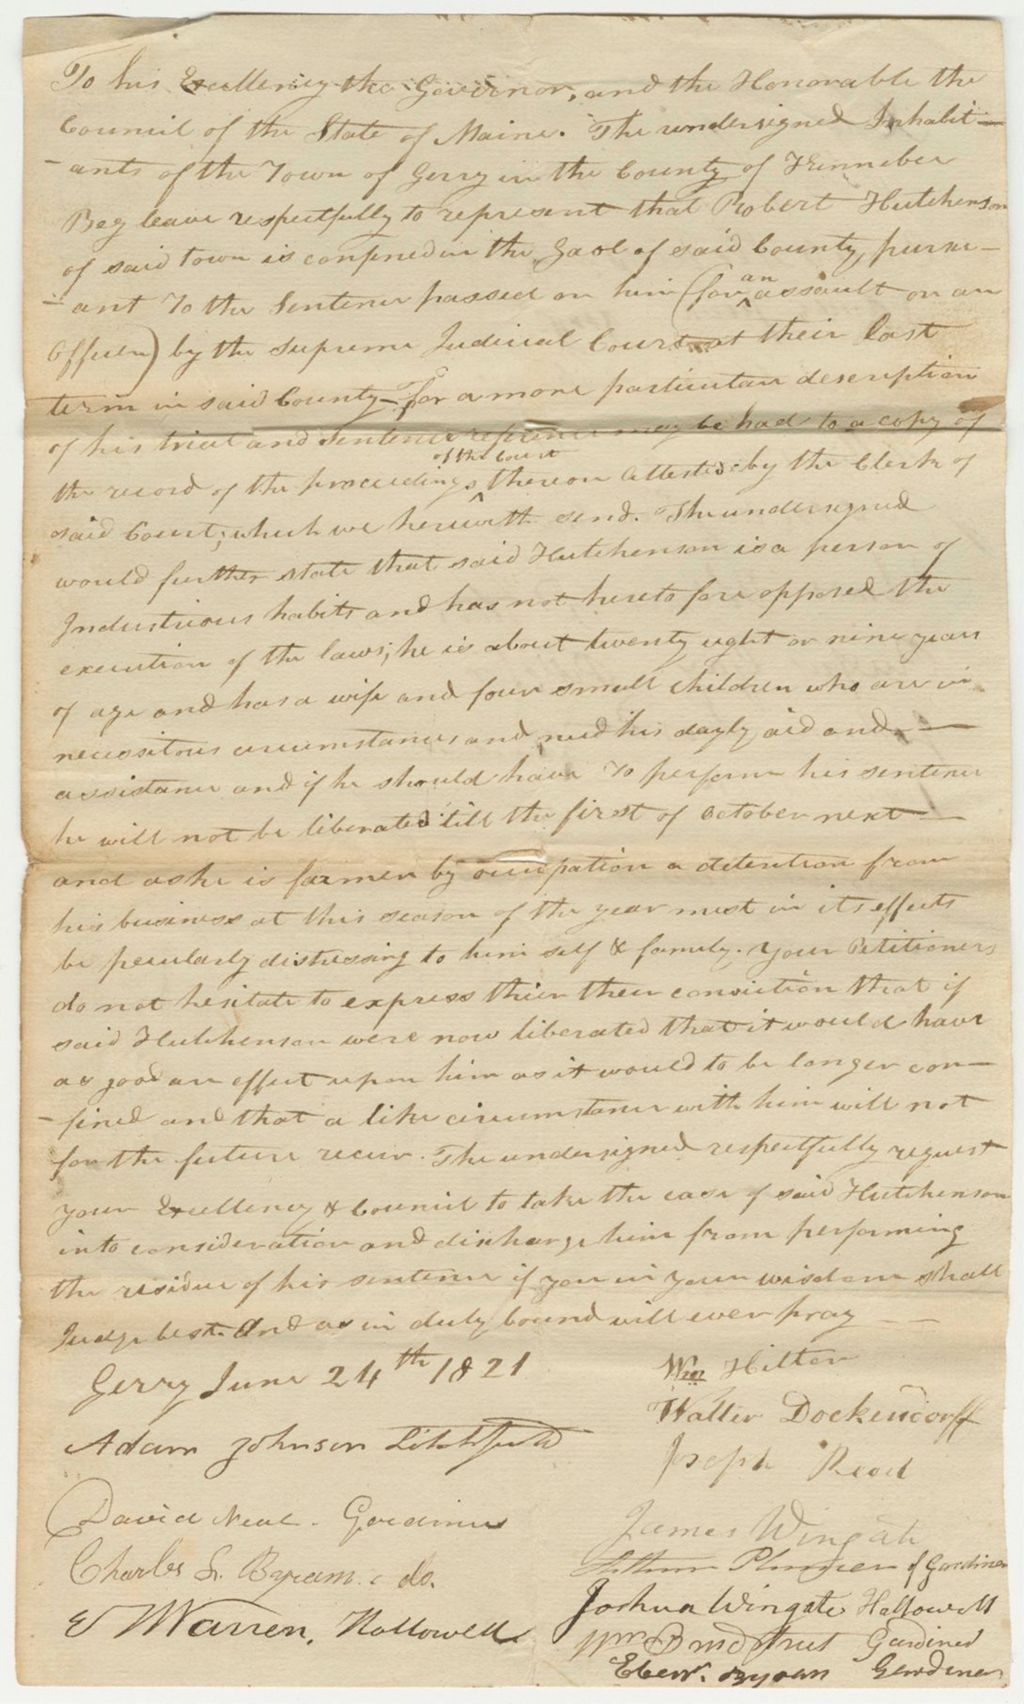 To his Excellency the Governor, and the Honorable the
Council of the State of Maine. The undersigned Inhabit-
-ants of the Town of Gerry in the County of Kennebec
Beg leave respectfully to represent that Robert Hutchenson
of said town is confined in the Gaol of said County, pursu-
-ant To the Sentence passed on him (for an assault on an
Officer) by the Supreme Judicial Court at their last
term in said County - For a more particular description
of his trial and sentence reference may be had to a copy of
the record of the proceedings of the Court thereon attested by the Clerk of
said Court; which we herewith send. The undersigned
would further state that said Hutchenson is a person of
Industrious habits and has not heretofore opposed the
execution of the laws; he is about twenty eight or nine years
of age and has a wife and four small children who are in
necessitous circumstances and need his dayly aid and
assistance and if he should have To perform his sentence
he will not be liberated till the first of October next
and as he is farmer by occupation a detention from
his business at this season of the year must in its effects
be pecularly distressing to him self & family. Your Petitioners
do not hesitate to express their conviction that if
said Hutchenson were now liberated that it would have
as good an effect upon him as it would to be longer con-
-fined and that a like circumstance with him will not
for the future recur. The undersigned respectfully request
your Excellency & Council to take the case of said Hutchenson
into consideration and discharge him from performing
the residue of his sentence if you in your wisdom shall
Judge best. And as in duty bound will ever pray
Gerry June 24th 1821
Wm Hilton
Walter Dockendorff
Adam Johnson Litchfield
Joseph Reed
David Neal - Gardiner
James Wingate
Charles S. Byram. do.
Arthur Plummer of Gardiner
Joshua Wingate Hallowell
E Warren, Hallowell
Wm Bradstreet Gardiner
Eben. Byram Gardiner